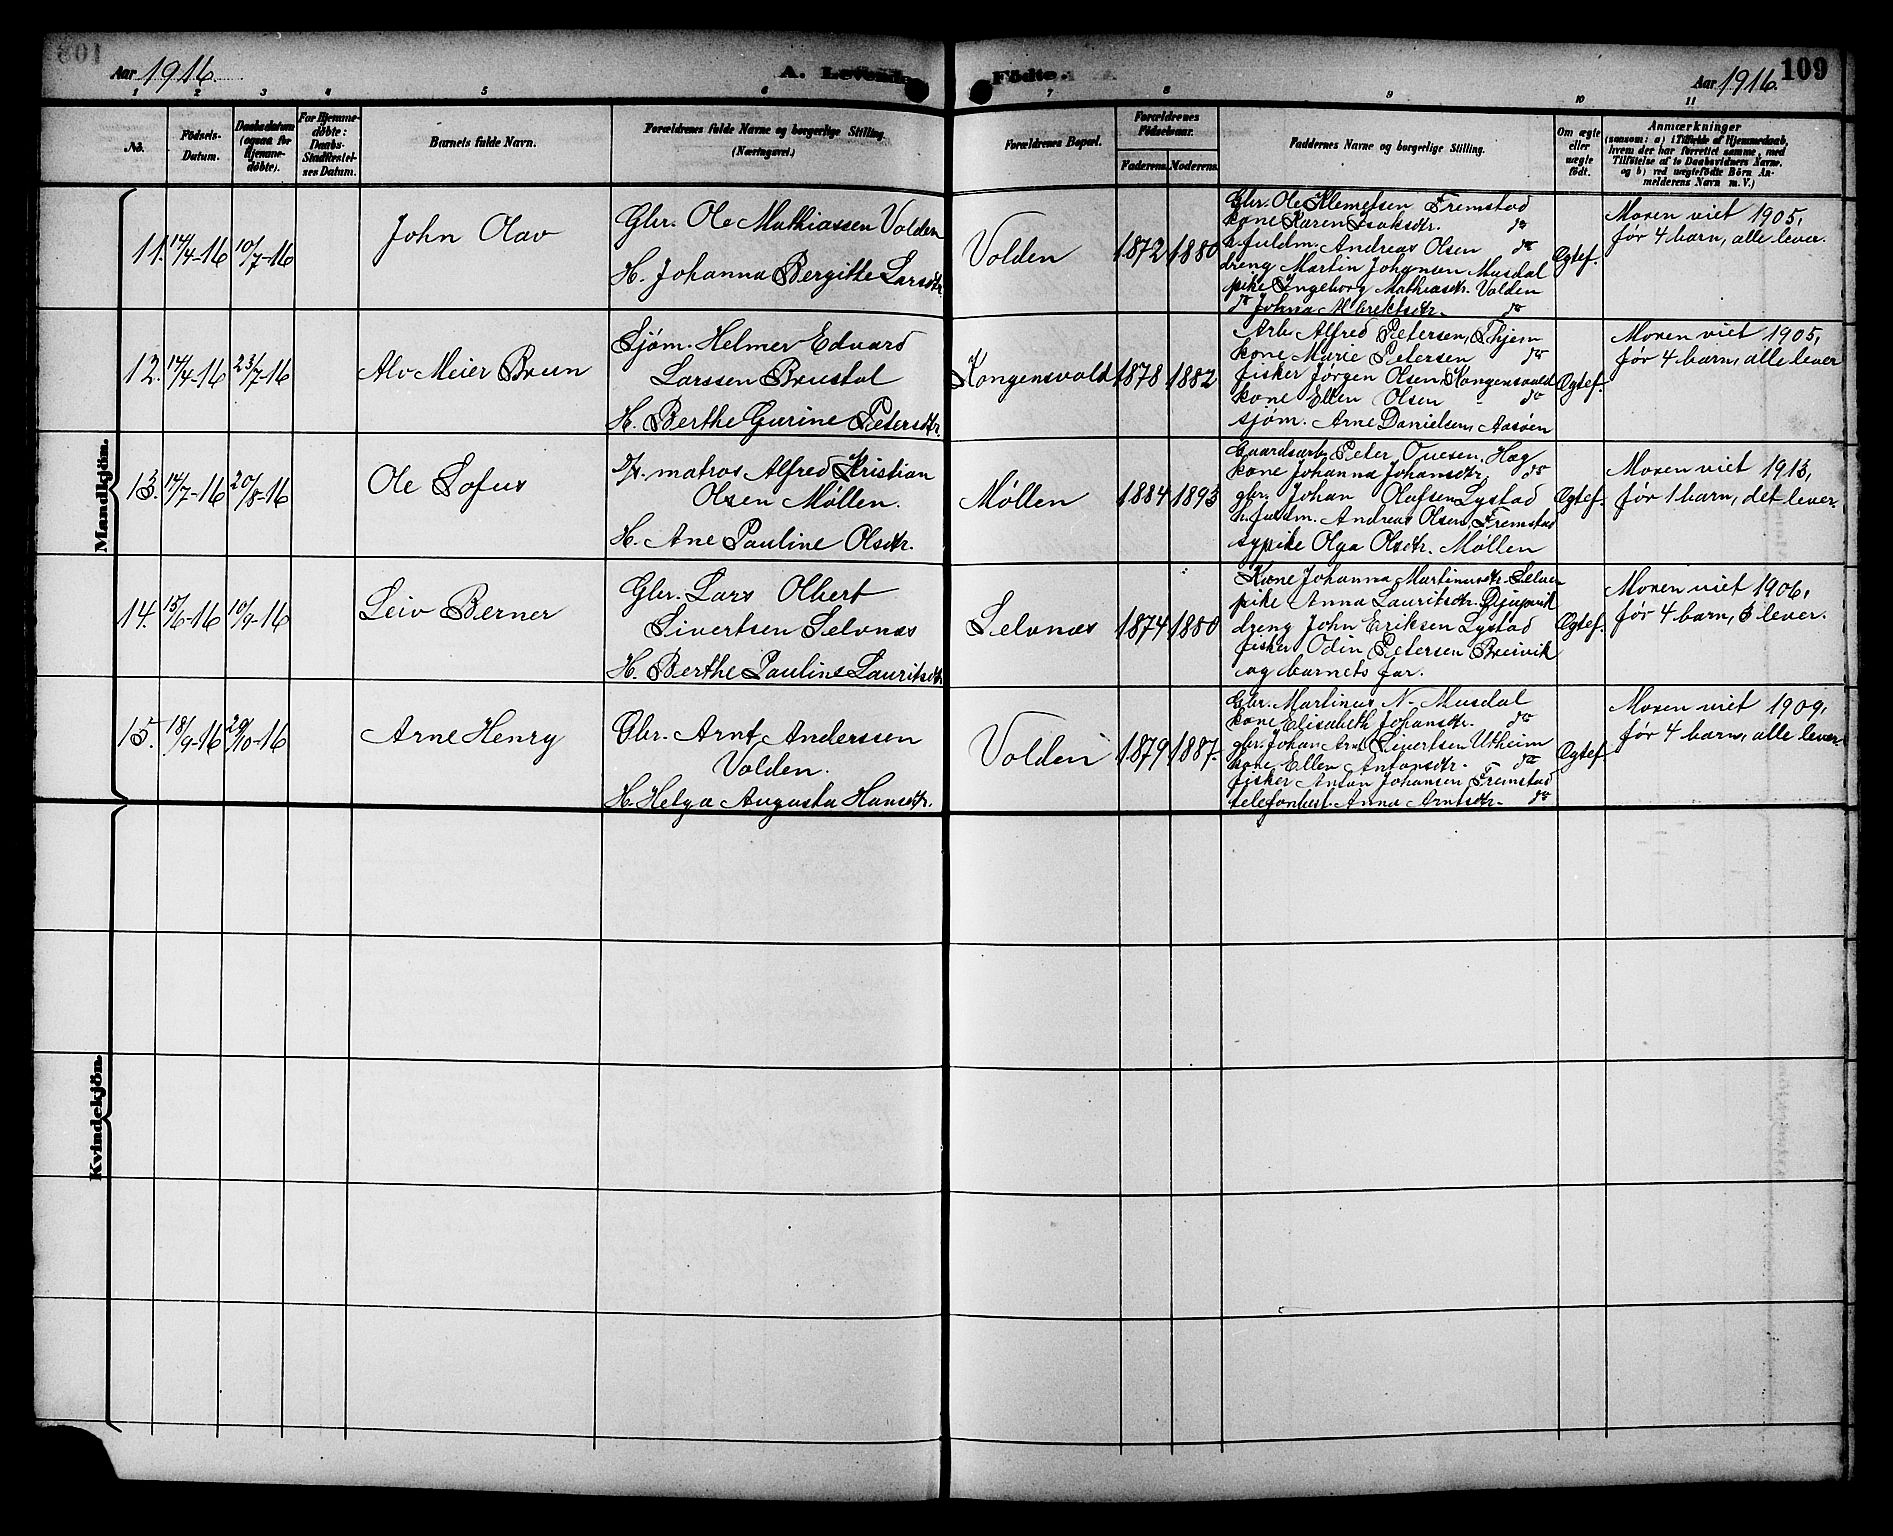 Aar 1916.
A. Levende
Födte.
Aar 1916.
109
1 2 3 4 5 6 7 8 9 10 11
No.
Födsels-
Datum.
Daabsdatum
(ogsaa for
Hjemme-
döbte).
For Hjemme-
döbte:
Daabs-
Stadfæstel-
ses Datum.
Barnets fulde Navn.
Forældrenes fulde Navne og borgerlige Stilling.
(Næringsvei.)
Forældrenes Bopæl.
Forældrenes
Födselsaar.
Faderens. Moderens.
Faddernes Navne og borgerlige Stilling.
Om ægte
eller
uægte
födt.
Anmærkninger
(saasom: a) i Tilfælde af Hjemmedaab,
hvem der har forrettet samme, med
Tilföielse af to Daabsvidners Navne,
og b) ved uægtefödte Börn An-
melderens Navn m. V.)
Mandkjön.
11. 14/4-16 10/7-16
John Olav
Gbr. Ole Mathiassen Volden
H. Johanna Bergitte Larsdtr.
Volden
1872 1880
Gbr. Ole Klemetsen Fremstad
kone Karen Isaksdtr. do
h.fuldm. Andreas Olsen do
dreng Martin Johansen Musdal
pike Ingeborg Mathiasdtr. Volden
do Johna Albriktsdtr. do
Ægtef.
Moren viet 1905,
før 4 barn, alle lever.
12. 14/4-16 23/7-16
Alv Meier Brun
Sjøm. Helmer Edvard
Larssen Brustøl
H. Berthe Gurine Petersdtr.
Kongensvold
1878 1882
Arb. Alfred Petersen, Thjem
kone Marie Petersen do
fisker Jørgen Olsen, Kongensvold
kone Ellen Olsen do
sjøm. Arne Danielsen, Aasøen
Ægtef.
Moren viet 1905,
før 4 barn, alle lever
13. 14/7-16 20/8-16
Ole Sofus
matros Alfred Kristian
Olsen Møllen.
H. Ane Pauline Olsdtr.
Møllen
1884 1893
Gaardsarb. Peter Ovesen, Hog
kone Johanna Johansdtr. do
gbr. Johan Olufsen Lystad
h.fuldm. Andreas Olsen, Fremstad
sypike Olga Olsdtr. Møllen
Ægtef.
Moren viet 1913,
før 1 barn, det lever.
14. 15/6-16 10/9-16
Leiv Berner
Gbr. Lars Olbert
Sivertsen Selvnæs
H. Berthe Pauline Lauritsdtr.
Selvnæs
1874 1880
Kone Johanna Martinusdtr. Selvn
pike Anna Lauritsdtr. Djupvik
dreng John Eriksen Lystad
fisker Odin Petersen Breivik
og barnets far.
Ægtef.
Moren viet 1906,
før 4 barn, 3 lever.
15. 18/9-16 29/10-16
Arne Henry
Gbr. Arnt Anderssen
Volden.
H. Helga Augusta Hansdtr.
Volden
1879 1887.
Gbr. Martinus N. Musdal
kone Elisabeth Johansdtr. do
gbr. Johan Arnt Sivertsen Utheim
kone Ellen Antonsdtr. do
fisker Anton Johansen Fremstad
telefonbest. Anna Arntsdtr. do
Ægtef.
Moren viet 1909,
før 4 barn, alle lever.
Kvindekjön.